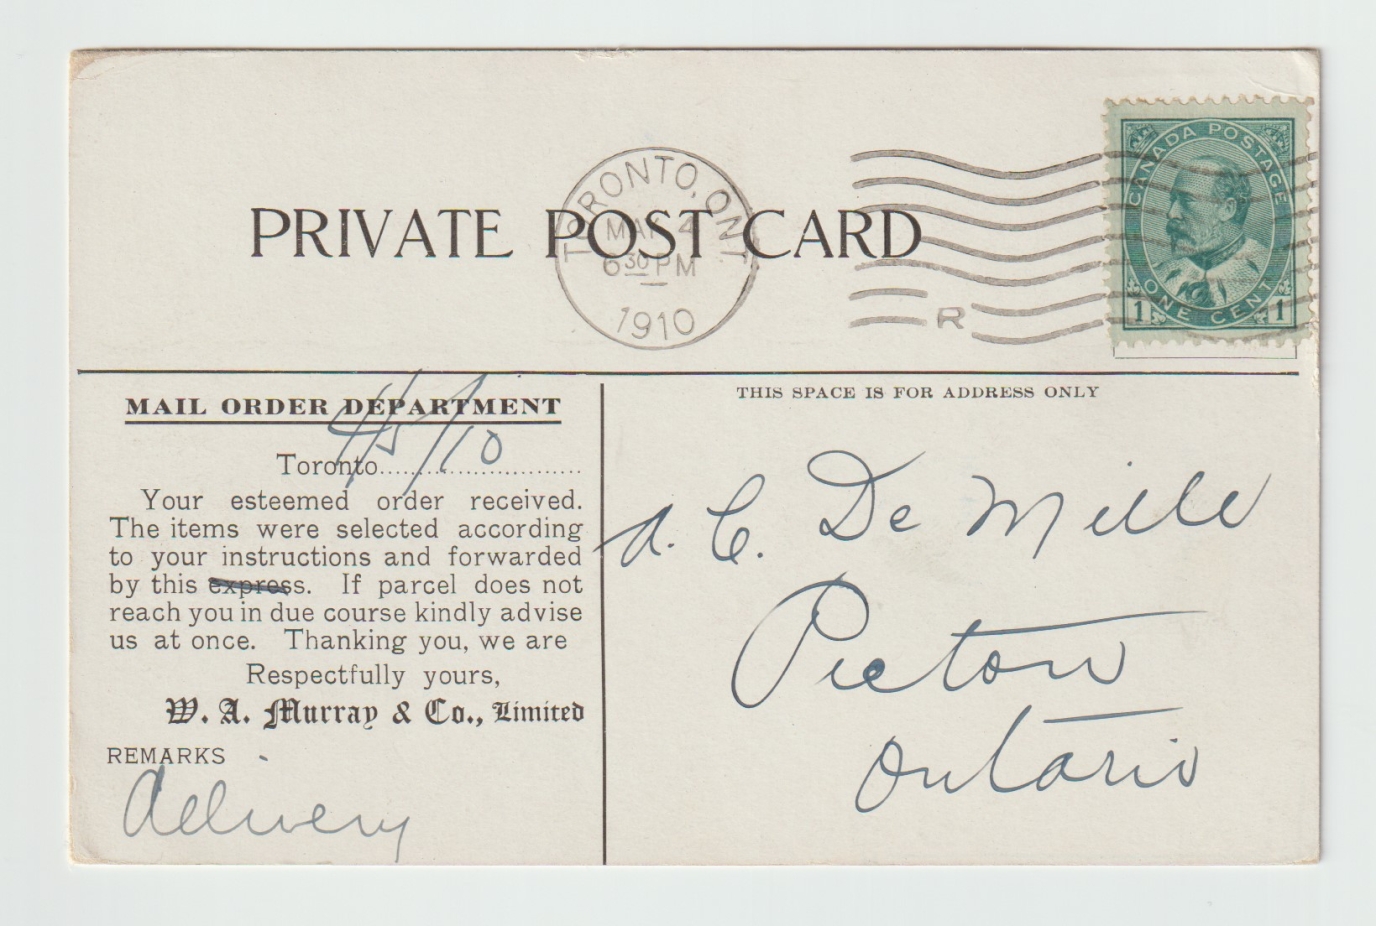 TORONTO, ONT
MAY 4
6 30 PM
1910
R
CANADA POSTAGE
ONE CENT
1 1
PRIVATE POST CARD
MAIL ORDER DEPARTMENT
Toronto 4/5/10
Your esteemed order received.
The items were selected according
to your instructions and forwarded
by this express. If parcel does not
reach you in due course kindly advise
us at once. Thanking you, we are
Respectfully yours,
W. A. Murray & Co., Limited
REMARKS
delivery
THIS SPACE IS FOR ADDRESS ONLY
A. C. De Mille
Picton
Ontario